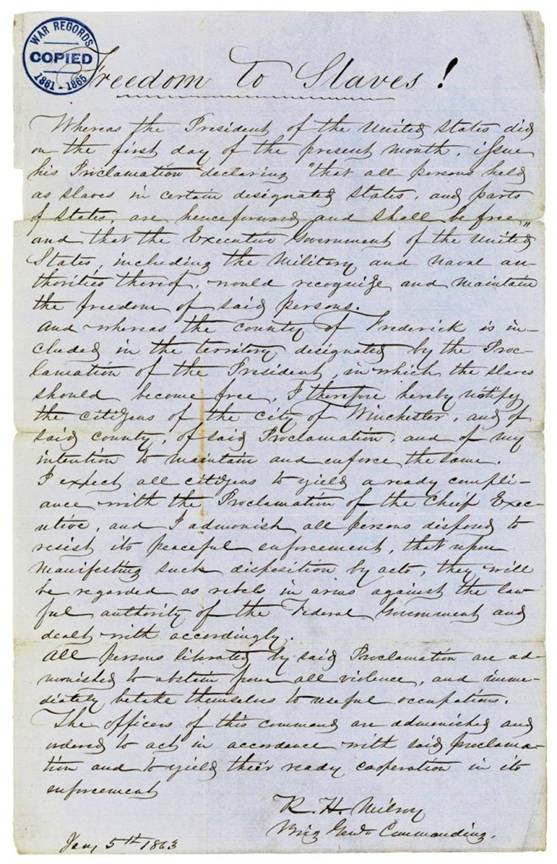 WAR RECORDS
COPIED
1861-1865
Freedom to Slaves!
Whereas the President of the United States did
on the first day of the present month, issue
his Proclamation declaring "that all persons held
as slaves in certain designated states, and parts
of states, are henceforward and shall be free,"
and that the Executive Government of the United
States, including the Military and Naval au-
thorities thereof, would recognize and maintain
the freedom of said persons.
And whereas the county of Frederick is in-
cluded in the territory designated by the Proc-
lamation of the President, in which the slaves
should become free, I therefore hereby notify
the citizens of the city of Winchester, and of
said county, of said Proclamation, and of my
intention to maintain and enforce the same.
I expect all citizens to yield a ready compli-
ance with the Proclamation of the Chief Exec-
utive, and I admonish all persons disposed to
resist its peaceful enforcement, that upon
manifesting such disposition by acts, they will
be regarded as rebels in arms against the law
ful authority of the Federal Government and
dealt with accordingly.
All persons liberated by said Proclamation are ad-
monished to abstain from all violence, and imme-
diately betake themselves to useful occupations.
The officers of this command are admonished and
ordered to act in accordance with said proclama-
tion and to yield their ready cooperation in its
enforcement
R. H. Milroy
Brig Genl Commanding.
Jany 5th 1863